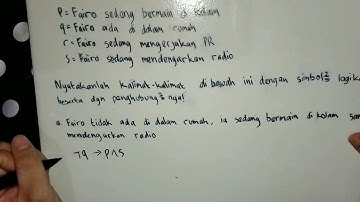 p = Fairo sedang bermain di kolam
q = Fairo ada di dalam rumah
r = Fairo sedang mengerjakan PR
s = Fairo sedang mendengarkan radio
Nyatakanlah kalimat-kalimat di bawah ini dengan simbol² logika
beserta dgn penghubung²nya!
a. Fairo tidak ada di dalam rumah, ia sedang bermain di kolam sam
mendengarkan radio
¬q → p ∧ s